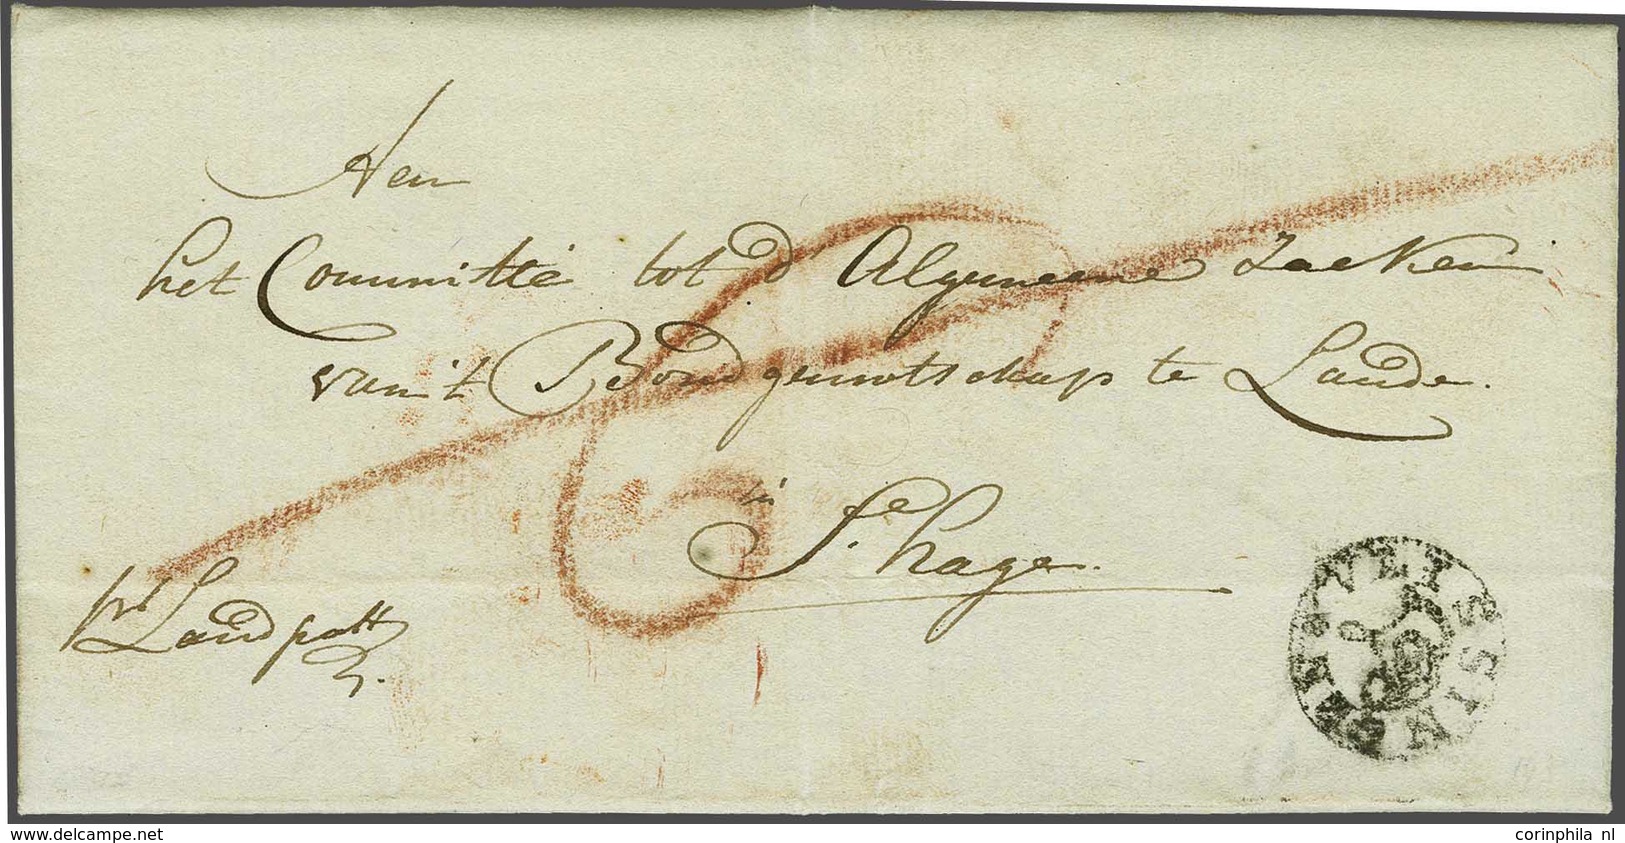 Aen
het Committé tot d' Algemeene Zaeken
van 't Bondgenootschap te Lande.
in
S.e hage.
pr. Landpost
VLISSINGEN
www.delcampe.net
corinphila nl